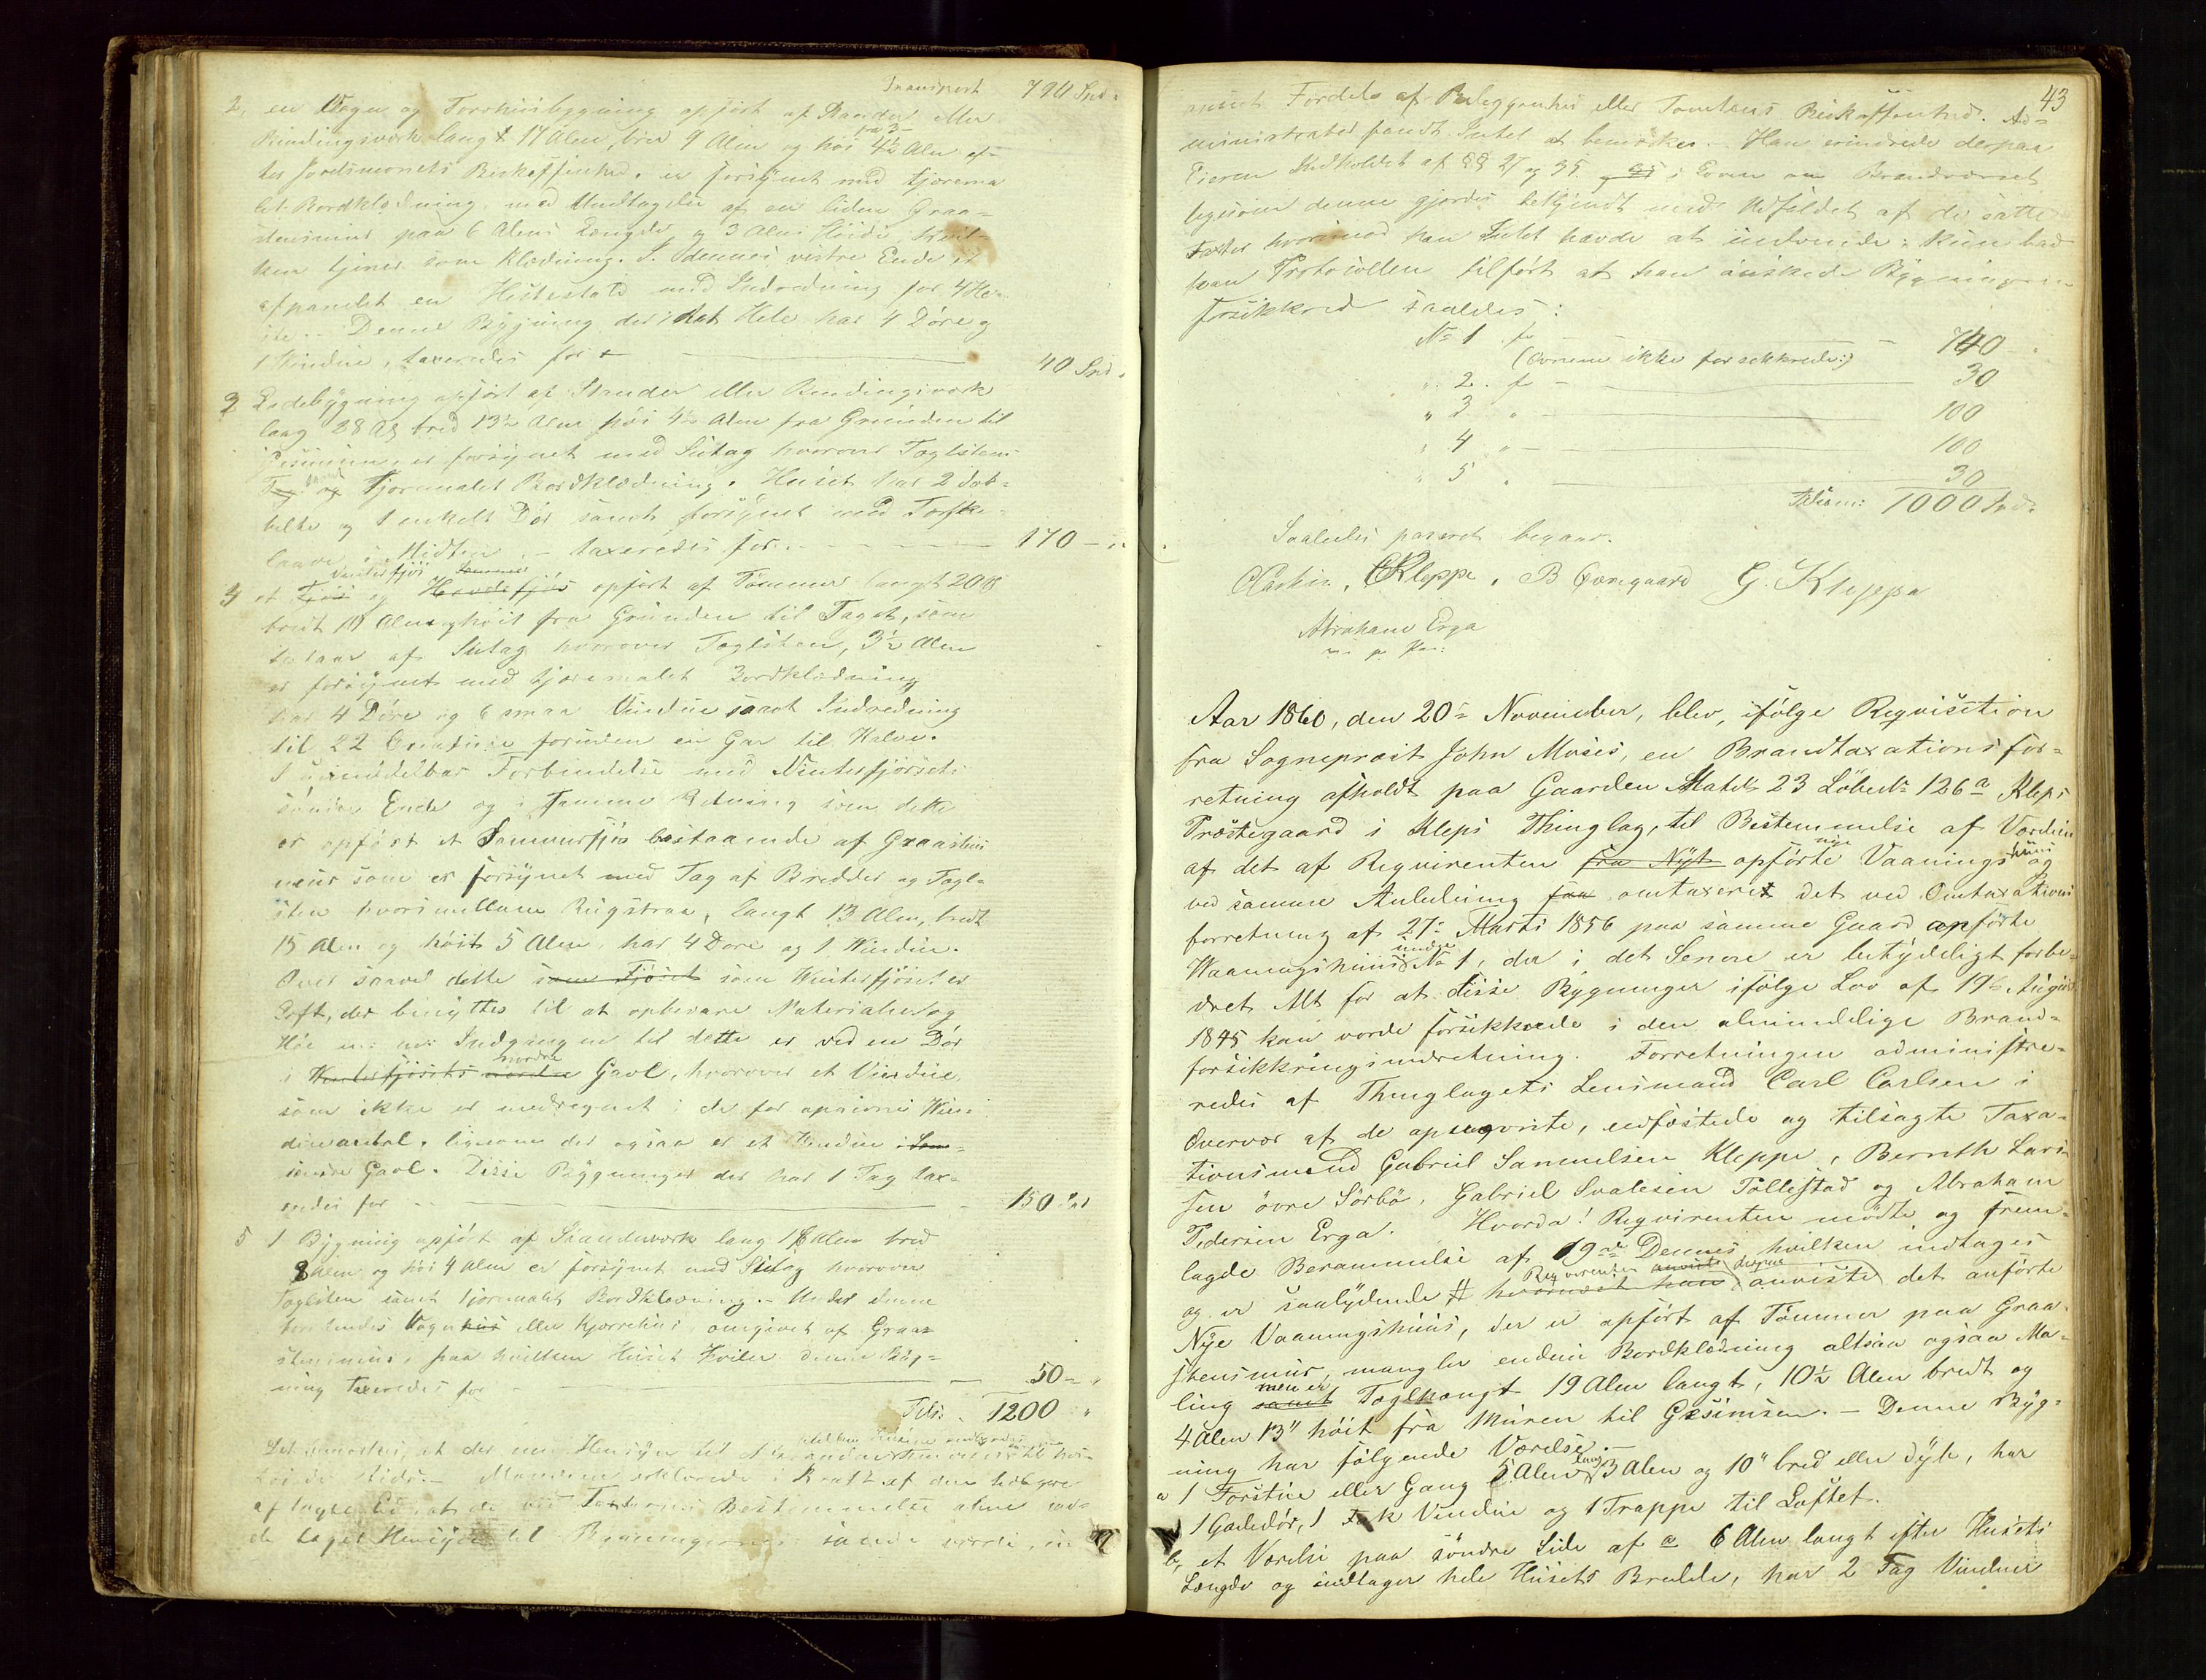 Transport 790 Spd:
2, en Vogn og Torvhuusbygning opført af Stander eller
Bindingsværk langt 17 Alen, bred 9 Alen og høi 4½ Alen ef-
ter Jordsmonets Beskaffenhed. er forsynet med tjærema
let Bordklædning, med Undtagelse af en liden Graa-
steensmuur paa 6 Alens Længde og 3 Alens Høide hvil-
ken tjener som Klædning. I dennes vestre Ende er
afpanelet en Hestestald med Indredning for 4 He-
ste. Denne Bygning der i det Hele har 4 Døre og
1 Vindue, taxeredes for 40 Spd.
3 Ladebygning opført af Stander eller Bindingsværk
lang 28 Al. bred 13½ Alen høi 4½ Alen fra Grunden til
Gesimsen, er forsynet med Sutag hvorover Taglsteen
Tag samt Tjæremalet Bordklædning. Huset har 2 dob-
belte og 1 enkelt Dør samt forsynet med Torske-
laave i Midten. - taxeredes for 170 -
Vinterfjøs Sommer
4 et Fjøs og Havdefjøs opført af Tømmer langt 20 Al
bredt 10 Alen og høit fra Grunden til Taget, som
bestaar af Sutag hvorover Taglsteen, 3½ Alen
er forsynet med tjæremalet Bordklædning
har 4 Døre og 6 smaa Vindue samt Indredning
til 22 Creature foruden en Gar til Kalve.
I umiddelbar Forbindelse med Vinterfjøsets
søndre Ende og i samme Retning som dette
er opført et Sommerfjøs bestaaende af Graasteens
muur som er forsynet med Tag af Bredder og Tagl-
steen hvorimellem Rugstraa, langt 13 Alen, bredt
15 Alen og høit 5 Alen, har 4 Døre og 1 Vindue.
Over saavel dette som Fjøset som Vinterfjøset er
Loft, der benyttes til at opbevare Materialier og
Høe m: m: Indgangen til dette er ved en Dør
i Vinterfjøsets nordre Gavl, hvorover et Vindue,
som ikke er medregnet i de før opgivne Vin-
dueantal, ligesom der ogsaa er et Vindue i
søndre Gavl. Disse Bygninger der har 1 Tag tax-
eredes for 150 Spd
5 1 Bygning opført af Standerværk lang 18 Alen bred
8 Alen og høi 4 Alen er forsynet med Sutag hvorover
Taglsteen samt tjæremalet Bordklædning. - Under denne
befindes Vognhus eller Kjærrehus omgivet af Graa
steensmuur, paa hvilken Huset hviler denne Byg-
ning taxeredes for 50 -
Tils: 1200 "
Det bemærkes, at der med Hensyn til
Mændene erklærede i Kraft af den tidligere
aflagte Eed, at de ved Taxternes Bestemmelse alene hav-
de taget Hensyn til Bygningernes sande værdi,
43
anseet Fordele af Beliggenhed eller Tomtens Beskaffenhed. Ad-
ministrator fandt Intet at bemærke. - Han erindrede derpaa
Eieren Indholdet af §§ 27 og 35 i Loven om Brandvæsenet
ligesom denne gjordes bekjendt med Udfaldet af de satte
Taxter hvorimod han Intet havde at indvende; kun bad
han Protocollen tilført at han ønskede Bygningerne
forsikkrede saaledes:
No 1 for 740
(Ovnene ikke forsekkrede:)
" 2. f 30
" 3 " 100
" 4 " 100
" 5 " 30
Tilsam: 1000 Spd.
Saaledes passeret begaar.
CCarlsen, Kleppe, B Øvregaard G. Kleppe
Abraham Erga
m: p: Pen:
Aar 1860, den 20de November, blev, ifølge Reqvisition
fra Sognepræst John Moses, en Brandtaxationsfor-
retning afholdt paa Gaarden Matr: 23 Løbe№ 126a Kleps
Præstegaard i Kleps Thinglag, til Bestemmelse af Værdien
af det af Reqvirenten fra Nyt opførte nye Vaaningshuus og
ved samme Anledning faa omtaxeret det ved Omtaxations
forretning af 27de Marts 1856 paa samme Gaard anførte
Vaaningshuus № 1, der i det Senere er betydeligt forbe-
dret Alt for at disse Bygninger ifølge Lov af 19de August
1845 kan vorde forsikkrede i den almindelige Brand-
forsikkringsindretning. Forretningen administre-
redes af Thinglagets Lensmand Carl Carlsen i
Overvær af de opnævnte, edfæstede og tilsagte Taxa-
tionsmænd Gabriel Samuelsen Kleppe, Bernth Lars-
sen øvre Sørbø, Gabriel Svalesen Tollestad og Abraham
Pedersen Erga. Hvorda! Reqvirenten mødte og frem-
lagde Berammelse af 19de Dennes hvilken indtages
og er saalydende # hvornæst han Reqvirenten anviste derpaa anviste det anførte
Nye Vaaningshuus, der er opført af Tømmer paa Graa-
steensmuur, mangler endnu Bordklædning altsaa ogsaa Ma-
ling samt men er Taglhængt 19 Alen langt, 10½ Alen bredt og
4 Alen 13" høit fra Muren til Gesimsen. - Denne Byg-
ning har følgende Værelse. -
a 1 Forstue eller Gang 5 Alen lang 3 Alen og 10" bred eller dyb, har
1 Gadedør, 1 Fak Vindue og 1 Trappe til Loftet.
b, et Værelse paa søndre Side af a 6 Alen langt efter Husets
Længde og indtager hele Husets Bredde, har 2 Fag Vinduer